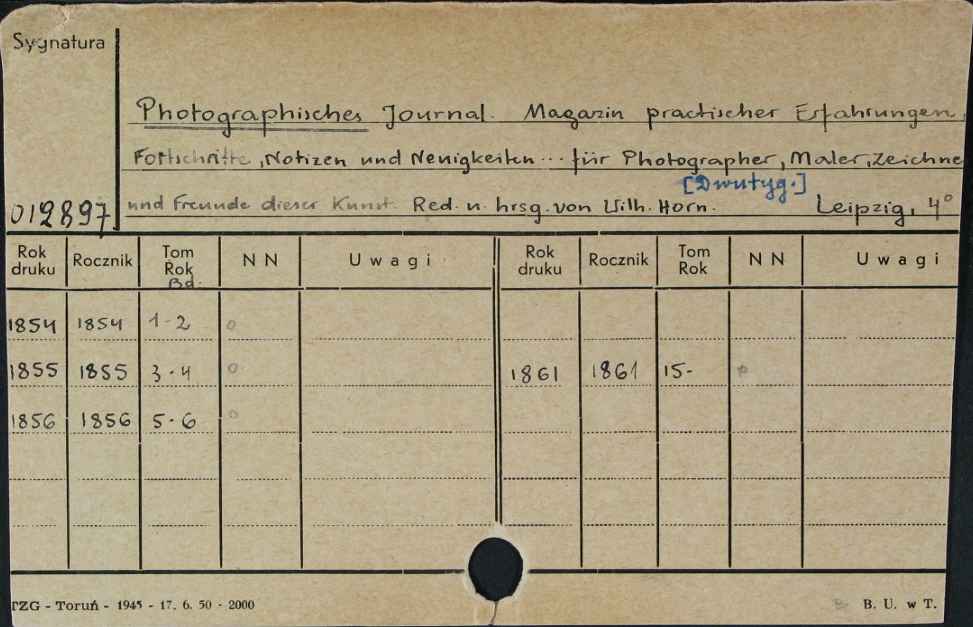 Sygnatura
Photographisches Journal. Magazin practischer Erfahrungen,
Fortschritte, Notizen und Neuigkeiten ... für Photographer, Maler, Zeichne
[Dwutyg.]
und Freunde dieser Kunst. Red. u. hrsg. von Wilh. Horn. Leipzig, 4°
012897
Rok druku Rocznik Tom Rok Bd. N N Uwagi Rok druku Rocznik Tom Rok N N Uwagi
1854 1854 1-2 o
1855 1855 3-4 o 1861 1861 15- o
1856 1856 5-6 o
TZG - Toruń - 1945 - 17. 6. 50 - 2000 B. U. w T.